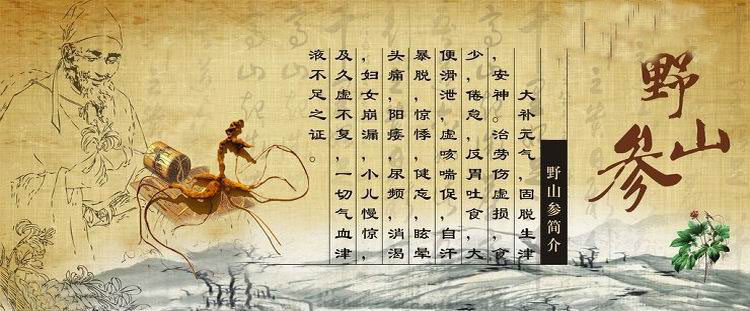 野山参
野山参简介
大补元气，固脱生津
，安神。治劳伤虚损，食
少，倦怠，反胃吐食，大
便滑泄，虚咳喘促，自汗
暴脱，惊悸，健忘，眩晕
头痛，阳痿，尿频，消渴
，妇女崩漏，小儿慢惊，
及久虚不复，一切气血津
液不足之证。